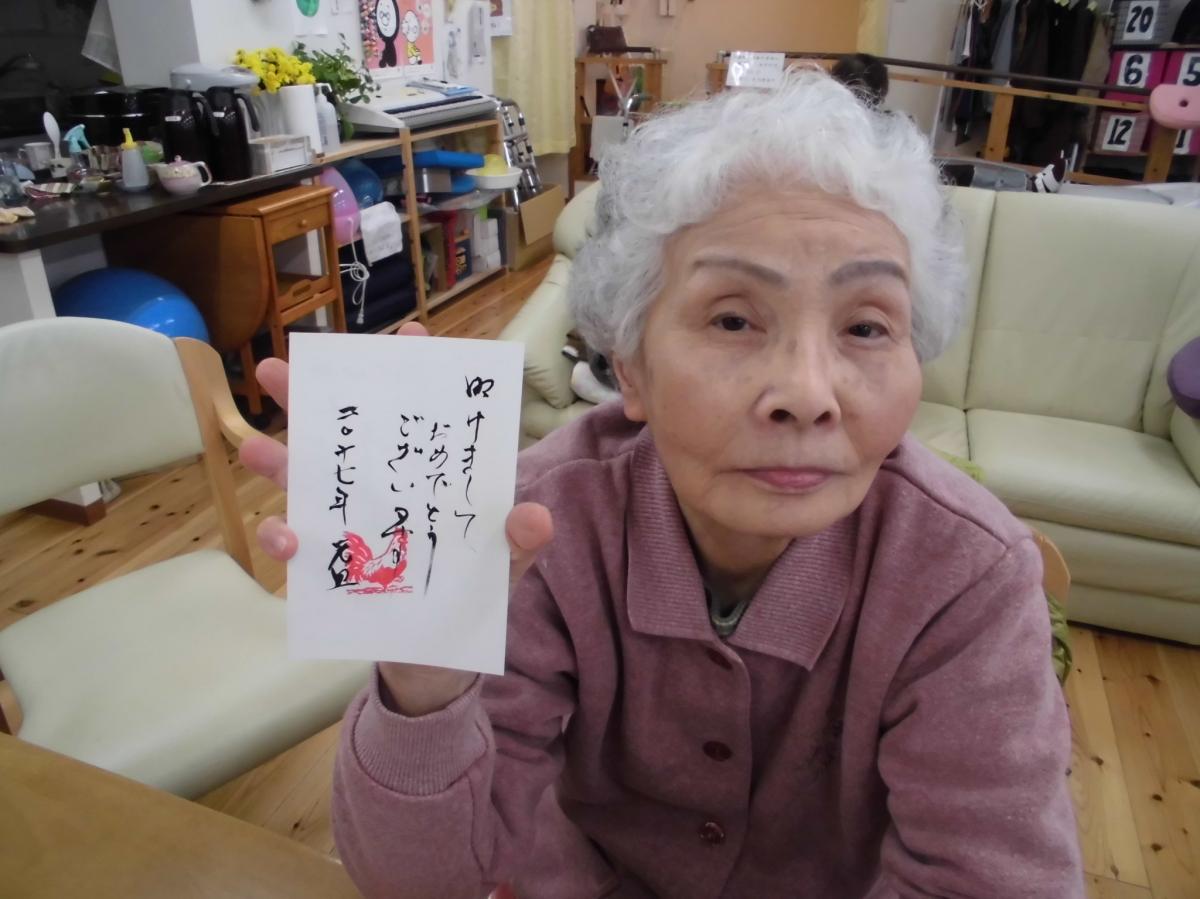 明けまして
おめでとう
ございます
二〇十七年 元旦
20
6
5
12